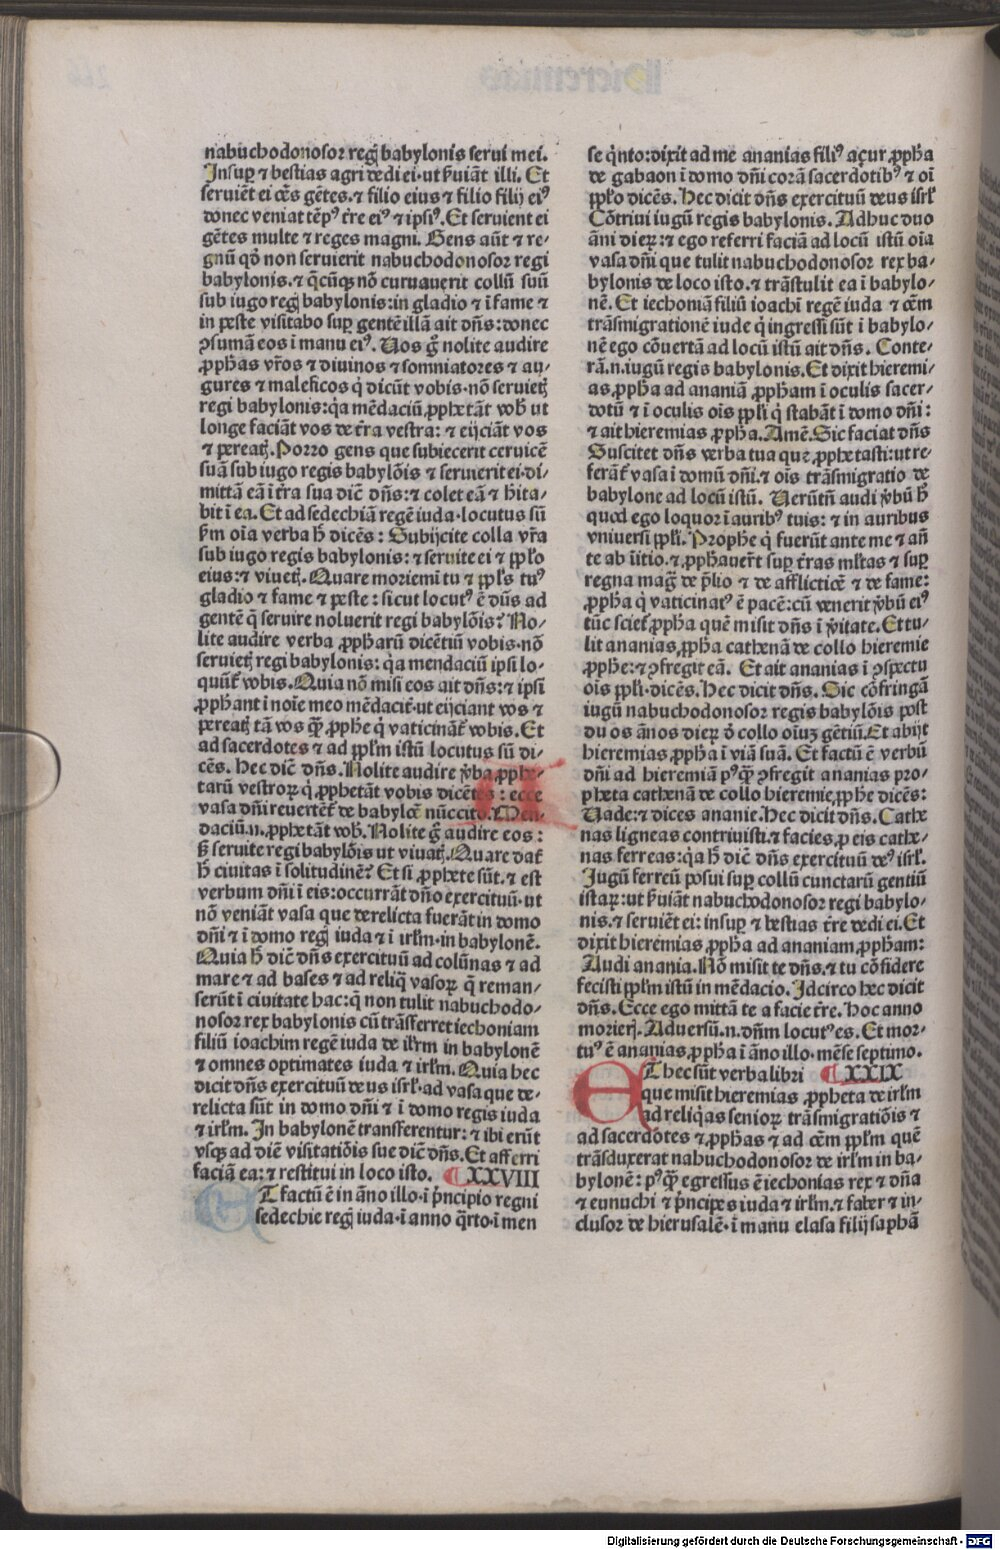 nabuchodonosor regꝭ babylonis serui mei.
Insuꝑ ⁊ bestias agri dedi ei·ut ẜuiāt illi. Et
seruiēt ei oēs gētes.⁊ filio eius ⁊ filio filij eiꝰ
donec veniat tēpꝰ t̄re eiꝰ ⁊ ipsiꝰ. Et seruient ei
gētes multe ⁊ reges magni. Gens aūt ⁊ re-
gnū qđ non seruierit nabuchodonosor regi
babylonis.⁊ q̄cūqꝫ nō curuauerit collū suū
sub iugo regꝭ babylonis:in gladio ⁊ ī fame ⁊
in peste visitabo suꝑ gentē illā ait dn̄s:donec
ꝯsumā eos ī manu eiꝰ. Uos g̊ nolite audire
ꝓph̄as vr̄os ⁊ diuinos ⁊ somniatores ⁊ au-
gures ⁊ maleficos q̇ dicūt vobis·nō seruietꝭ
regi babylonis:q̇a mēdaciū ꝓphetāt vob̄ ut
longe faciāt vos de t̄ra vestra: ⁊ eijciāt vos
⁊ pereatꝭ. Porro gens que subiecerit ceruicē
suā sub iugo regis babylōis ⁊ seruierit ei·di-
mittā eā ī t̄ra sua dic̄ dn̄s:⁊ colet eā ⁊ h̄ita-
bit ī ea. Et ad sedechiā regē iuda·locutus sū
ẜm oīa verba h̄ dicēs: Subijcite colla vr̄a
sub iugo regis babylonis: ⁊ seruite ei ⁊ pp̄lo
eius:⁊ viuetꝭ. Quare moriemī tu ⁊ pp̄ls tuꝰ
gladio ⁊ fame ⁊ peste: sicut locutꝰ ē dn̄s ad
gentē q̄ seruire noluerit regi babylōis? No-
lite audire verba ꝓph̄arū dicētiū vobis·nō
seruietꝭ regi babylonis: q̇a mendaciū ipsi lo-
quūt̄ vobis. Quia nō misi eos ait dn̄s:⁊ ipsi
ꝓphant ī noīe meo mēdacit̄·ut eijciant vos ⁊
pereatꝭ tā vos q̄ꝫ ꝓphe q̇ vaticināt̄ vobis. Et
ad sacerdotes ⁊ ad pp̄lm istū locutus sū di-
cēs. Hec dic̄ dn̄s. Nolite audire v̄ba ꝓphe-
tarū vestroꝝ q̇ ꝓphetāt vobis dicētes: ecce
vasa dn̄i reuertēt̄ de babylōe nūccito. Men-
daciū.n.ꝓphetāt vob̄. Nolite g̊ audire eos:
ẜꝫ seruite regi babylōis ut viuatꝭ. Quare dat̄
h̄ ciuitas ī solitudinē? Et si ꝓphete sūt.⁊ est
verbum dn̄i ī eis:occurrāt dn̄o exercituū·ut
nō veniāt vasa que derelicta fuerāt in domo
dn̄i ⁊ ī domo regꝭ iuda ⁊ ī irl̄m·in babylonē.
Quia h̄ dic̄ dn̄s exercituū ad colūnas ⁊ ad
mare ⁊ ad bases ⁊ ad reliq̇ vasoꝝ q̄ reman-
serūt ī ciuitate hac:q̄ non tulit nabuchodo-
nosor rex babylonis cū trāsferret iechoniam
filiū ioachim regē iuda de irl̄m in babylonē
⁊ omnes optimates iuda ⁊ irl̄m. Quia hec
dicit dn̄s exercituū deus isrl̄·ad vasa que de-
relicta sūt in domo dn̄i ⁊ ī domo regis iuda
⁊ irl̄m. In babylonē transferentur: ⁊ ibi erūt
vsqꝫ ad diē visitatiōis sue dic̄ dn̄s. Et afferri
faciā ea: ⁊ restitui in loco isto. XXVIII
ET factū ē in āno illo·ī pͥncipio regni
sedechie regꝭ iuda·ī anno q̄rto·ī men
se q̇nto:dixit ad me ananias filiꝰ açur ꝓph̄a
de gabaon ī domo dn̄i corā sacerdotibꝰ ⁊ oī
pp̄lo dicēs. Hec dicit dn̄s exercituū deus isrl̄
Cōtriui iugū regis babylonis. Adhuc duo
āni dieꝝ: ⁊ ego referri faciā ad locū istū oīa
vasa dn̄i que tulit nabuchodonosor rex ba-
bylonis de loco isto.⁊ trāstulit ea ī babylo-
nē. Et iechoniā filiū ioachī regē iuda ⁊ oēm
trāsmigrationē iude q̇ ingressi sūt ī babylo-
nē ego cōuertā ad locū istū ait dn̄s. Conte-
rā.n.iugū regis babylonis. Et dixit hieremi-
as ꝓpha ad ananiā ꝓph̄am ī oculis sacer-
dotū ⁊ ī oculis oīs pp̄li q̇ stabāt ī domo dn̄i:
⁊ ait hieremias ꝓph̄a. Amē. Sic faciat dn̄s
Suscitet dn̄s verba tua que ꝓphetasti:ut re-
ferāt̄ vasa ī domū dn̄i.⁊ oīs trāsmigratio de
babylone ad locū istū. Uerūtn̄ audi v̄bū h̄
quod ego loquor ī auribꝰ tuis: ⁊ in auribus
vniuersi pp̄li. Prophe q̇ fuerūt ante me ⁊ an̄
te ab īitio.⁊ ꝓph̄auer̄t suꝑ t̄ras ml̄tas ⁊ suꝑ
regna maḡ de p̄lio ⁊ de afflictiōe ⁊ de fame:
ꝓph̄a q̇ vaticinatꝰ ē pacē:cū venerit v̄bū eiꝰ
tūc sciet̄ ꝓpha quē misit dn̄s ī v̄itate. Et tu-
lit ananias ꝓpha cathenā de collo hieremie
ꝓphe:⁊ ꝯfregit eā. Et ait ananias ī ꝯspectu
oīs pp̄li·dicēs. Hec dicit dn̄s. Sic cōfringā
iugū nabuchodonosor regis babylōis post
duos ānos dieꝝ ō collo oīuꝫ gētiū. Et abijt
hieremias ꝓpha ī viā suā. Et factū ē verbū
dn̄i ad hieremiā pꝰq̄ꝫ ꝯfregit ananias pro-
pheta cathenā de collo hieremie ꝓphe dicēs:
Uade:⁊ dices ananie. Hec dicit dn̄s. Cathe
nas ligneas contriuisti.⁊ facies ꝓ eis cathe-
nas ferreas:q̇a h̄ dic̄ dn̄s exercituū deꝰ isrl̄.
Iugū ferreū posui suꝑ collū cunctarū gentiū
istaꝝ:ut ẜuiāt nabuchodonosor regi babylo-
nis.⁊ seruiēt ei: insuꝑ ⁊ bestias t̄re dedi ei. Et
dixit hieremias ꝓph̄a ad ananiam ꝓph̄am:
Audi anania. Nō misit te dn̄s.⁊ tu cōfidere
fecisti pp̄lm istū in mēdacio. Idcirco hec dicit
dn̄s. Ecce ego mittā te a facie t̄re. Hoc anno
morierꝭ. Aduersū.n.dn̄m locutꝰ es. Et mor-
tuꝰ ē ananias ꝓpha ī āno illo·mēse septimo.
ET hec sūt verba libri XXIX
que misit hieremias ꝓpheta de irl̄m
ad reliq̇as senioꝝ trāsmigratiōis ⁊
ad sacerdotes ⁊ ꝓph̄as ⁊ ad oēm pp̄lm quē
trāsduxerat nabuchodonosor de irl̄m in ba-
bylonē: pꝰq̄ꝫ egressus ē iechonias rex ⁊ dn̄a
⁊ eunuchi ⁊ pͥncipes iuda ⁊ irl̄m.⁊ faber ⁊ in-
clusor de hierusalē·ī manu elasa filij saphā
Digitalisierung gefördert durch die Deutsche Forschungsgemeinschaft - DFG